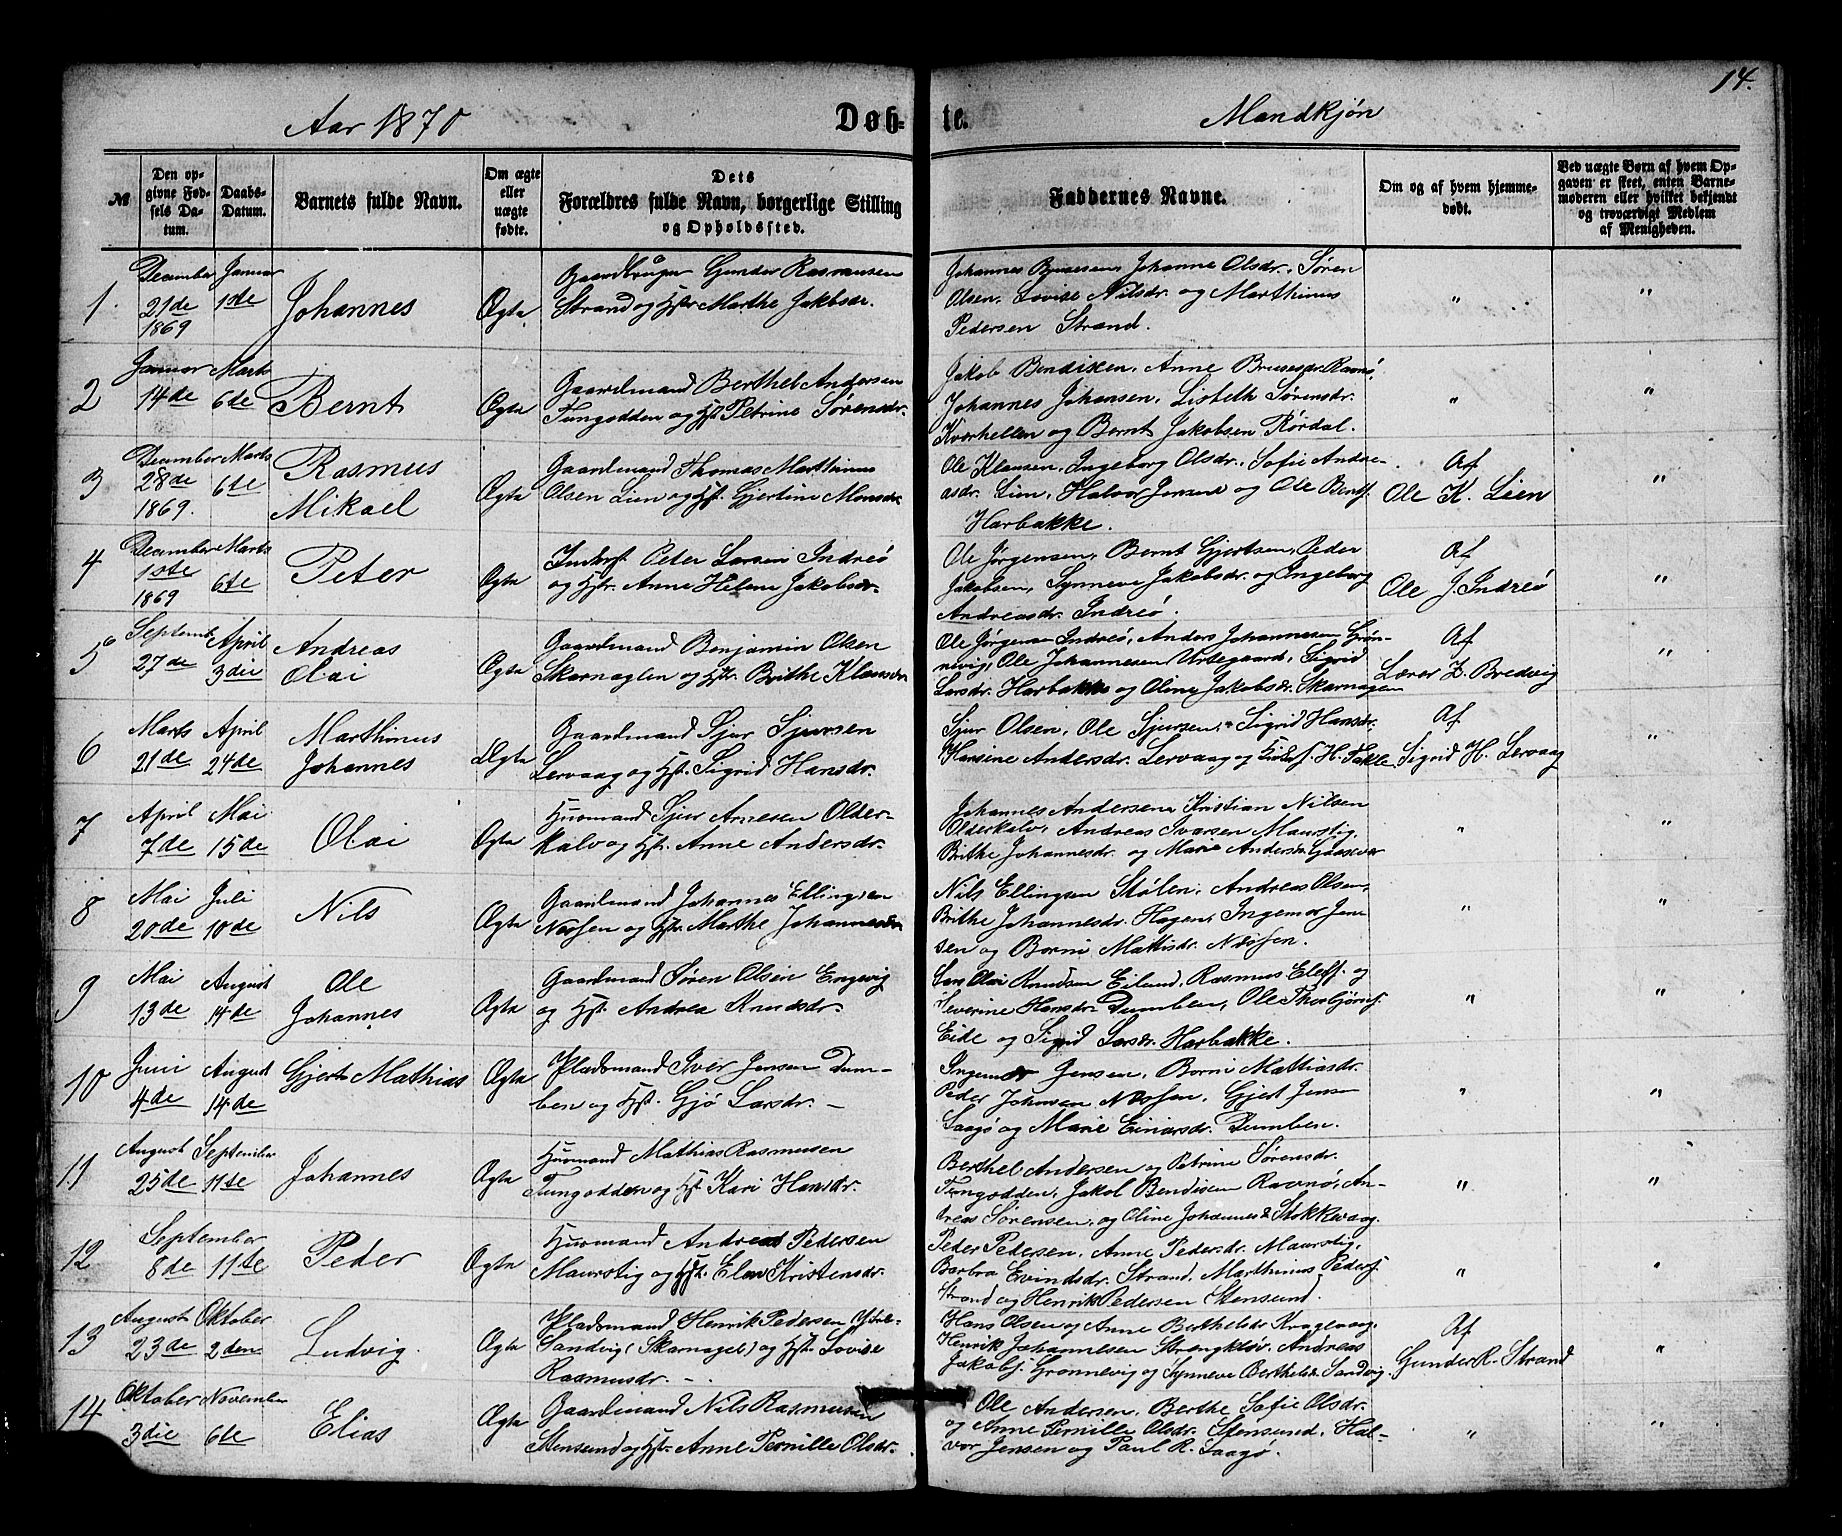 14.
Aar 1870
Døb-
te.
Mandkjøn
№
Den op-
givne Fød-
sels Da-
tum.
Daabs-
Datum.
Barnets fulde Navn.
Om ægte
eller
uægte
fødte.
Dets
Forældres fulde Navn, borgerlige Stilling
og Opholdssted.
Faddernes Navne.
Om og af hvem hjemme-
døbt.
Ved uægte Børn af hvem Op-
gaven er skeet, enten Barne-
moderen eller hvilket bekjendt
og troværdigt Medlem
af Menigheden.
1.
December
21de
1869
Januar
1ste
Johannes
Ægte
Gaardbruger Gunder Rasmussen
Strand og Hst. Marthe Jakobsdr.
Johannes Johanne Olsdr. Søren
Olsen. Lovise Nilsdr. og Marthinus
Pedersen Strand.
"
"
2
Januar
14de
Marts
6te
Bernt
Ægte
Gaardmand Berthel Andersen
Tungodden og Hst. Petrine Sørensdr.
Jakob Bendixen, Anne Brusesdr. Ravnø,
Johannes Johansen, Lisbeth Sørensdr.
Kværhellen og Bernt Jakobsen Rørdal.
"
"
3
December
28de
1869.
Marts
6te
Rasmus
Mikael
Ægte
Gaardmand Thomas Marthinus
Olsen Lien og Hst. Gjertine Monsdr.
Ole Klausen, Ingeborg Olsdr., Sofie Andre-
asdr. Lien, Halvor Jensen og Ole Bents.
Harbakke.
Af
Ole K. Lien
"
4
December
1ste
1869
Marts
6te
Peter
Ægte
Inderst Peter Larsen Indreø
og Hst. Anne Helene Jakobsdr.
Ole Jørgensen, Bernt Gjertsen, Peder
Jakobsen, Synneve Jakobsdr. og Ingeborg
Andreasdr. Indreø.
Af
Ole J. Indreø
"
5
Septemb.
27de
April
3die
Andreas
Olai
Ægte
Gaardmand Benjamin Olsen
Skarnaglen og Hst. Brithe Klausdr.
Ole Jørgensen Indreø, Anders Johannesen Grøn-
nevig, Ole Johannesen Urtegaard, Sigrid
Larsdr. Harbakke og Oline Jakobsdr. Skarnagen
Af
Lærer Z. Bredvig
"
6
Marts
21de
April
24de
Marthinus
Johannes
Ægte
Gaardmand Sjur Sjursen
Lervaag og Hst. Sigrid Hansdr.
Sjur Olsen, Ole Sjursen, Sigrid Hansdr,
Hansine Andersdr. Lervaag og H. Takle
Af
Sigrid H. Lervaag
"
7
April
7de
Mai
15de
Olai
Ægte
Husmand Sjur Arnesen Older-
kalv og Hst. Anne Andersdr.
Johannes Andersen, Kristian Nilsen
Olderkalv, Andreas Ivarsen Maurstig,
Brithe Johannesdr. og Marie Andersdr. Gaasvær
"
"
8
Mai
20de
Juli
10de
Nils
Ægte
Gaardmand Johannes Ellingsen
Nosen og Hst. Marthe Johannesdr.
Nils Ellingsen Stølen, Andreas Olsen,
Brithe Johannesdr. Hagen, Ingemar Jen-
sen og Borni Mattisdr. Nosen.
"
"
9
Mai
13de
August
14de
Ole
Johannes
Ægte
Gaardmand Søren Olsen Engevig
og Hst. Andrea Knudsdr.
Lars Olai Knudsen Eilund, Rasmus Elefs. og
Severine Hansdr. Dumben, Ole Thorbjørns.
Eide og Sigrid Larsdr. Harbakke.
"
"
10
Juni
4de
August
14de
Gjert Mathias
Ægte
Pladsmand Iver Jensen Dum-
ben og Hst. Gjø Larsdr. –
Ingemar Jensen, Borni Mathiasdr.
Peder Johansen Nosen. Gjert Jens
Saagø og Marie Einarsdr. Dumben.
"
"
11
August
25de
September
11te
Johannes
Ægte
Husmand Mathias Rasmussen
Tungodden og Hst. Kari Hansdr.
Berthel Andersen og Petrine Sørensdr.
Tungodden, Jakob Bendixen Ravnø, An-
dreas Sørensen, og Oline Johannesd. Stokkevaag.
"
"
12
September
8de
11te
Peder
Ægte
Husmand Andreas Pedersen
Maurstig og Hst. Elen Kristensdr.
Peder Pedersen, Anne Pedersdr. Maurstig,
Barbra Evindsdr. Strand, Marthinus Peders.
Strand og Henrik Pedersen Stensund.
"
"
13
August
23de
Oktober
2den
Ludvig
Ægte
Pladsmand Henrik Pedersen
Sandvig (Skarnagel) og Hst. Lovise
Rasmusdr. – .
Hans Olsen og Anne Berthelsdr. Kraglvaag,
Henrik Johannesen Strengkløv, Andreas
Jakobs. Grønnevig og Synneve Berthelsd. Sandvig.
Af
Gunder R. Strand
"
14
Oktober
3die
November
6te
Elias
Ægte
Gaardmand Nils Rasmussen
Stensund og Hst. Anne Pernille Olsdr.
Ole Andersen, Berthe Sofie Olsdr.
og Anne Pernille Olsdr. Stensund, Hal-
vor Jensen og Paul R. Saagø.
"
"